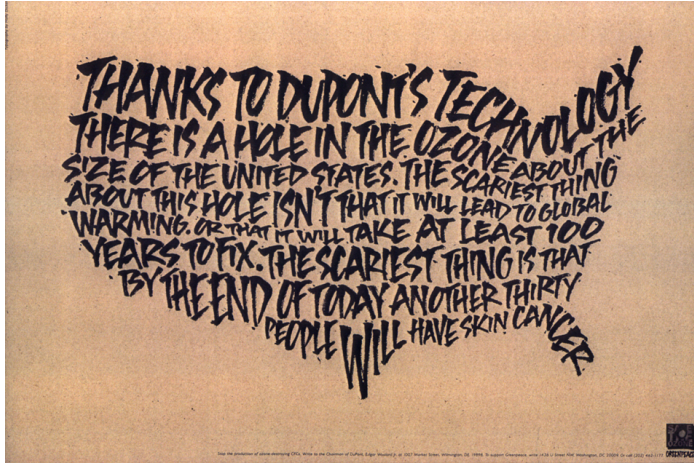 THANKS TO DUPONT'S TECHNOLOGY
THERE IS A HOLE IN THE OZONE ABOUT THE
SIZE OF THE UNITED STATES. THE SCARIEST THING
ABOUT THIS HOLE ISN'T THAT IT WILL LEAD TO GLOBAL
WARMING. OR THAT IT WILL TAKE AT LEAST 100
YEARS TO FIX. THE SCARIEST THING IS THAT
BY THE END OF TODAY ANOTHER THIRTY
PEOPLE WILL HAVE SKIN CANCER.
GREENPEACE